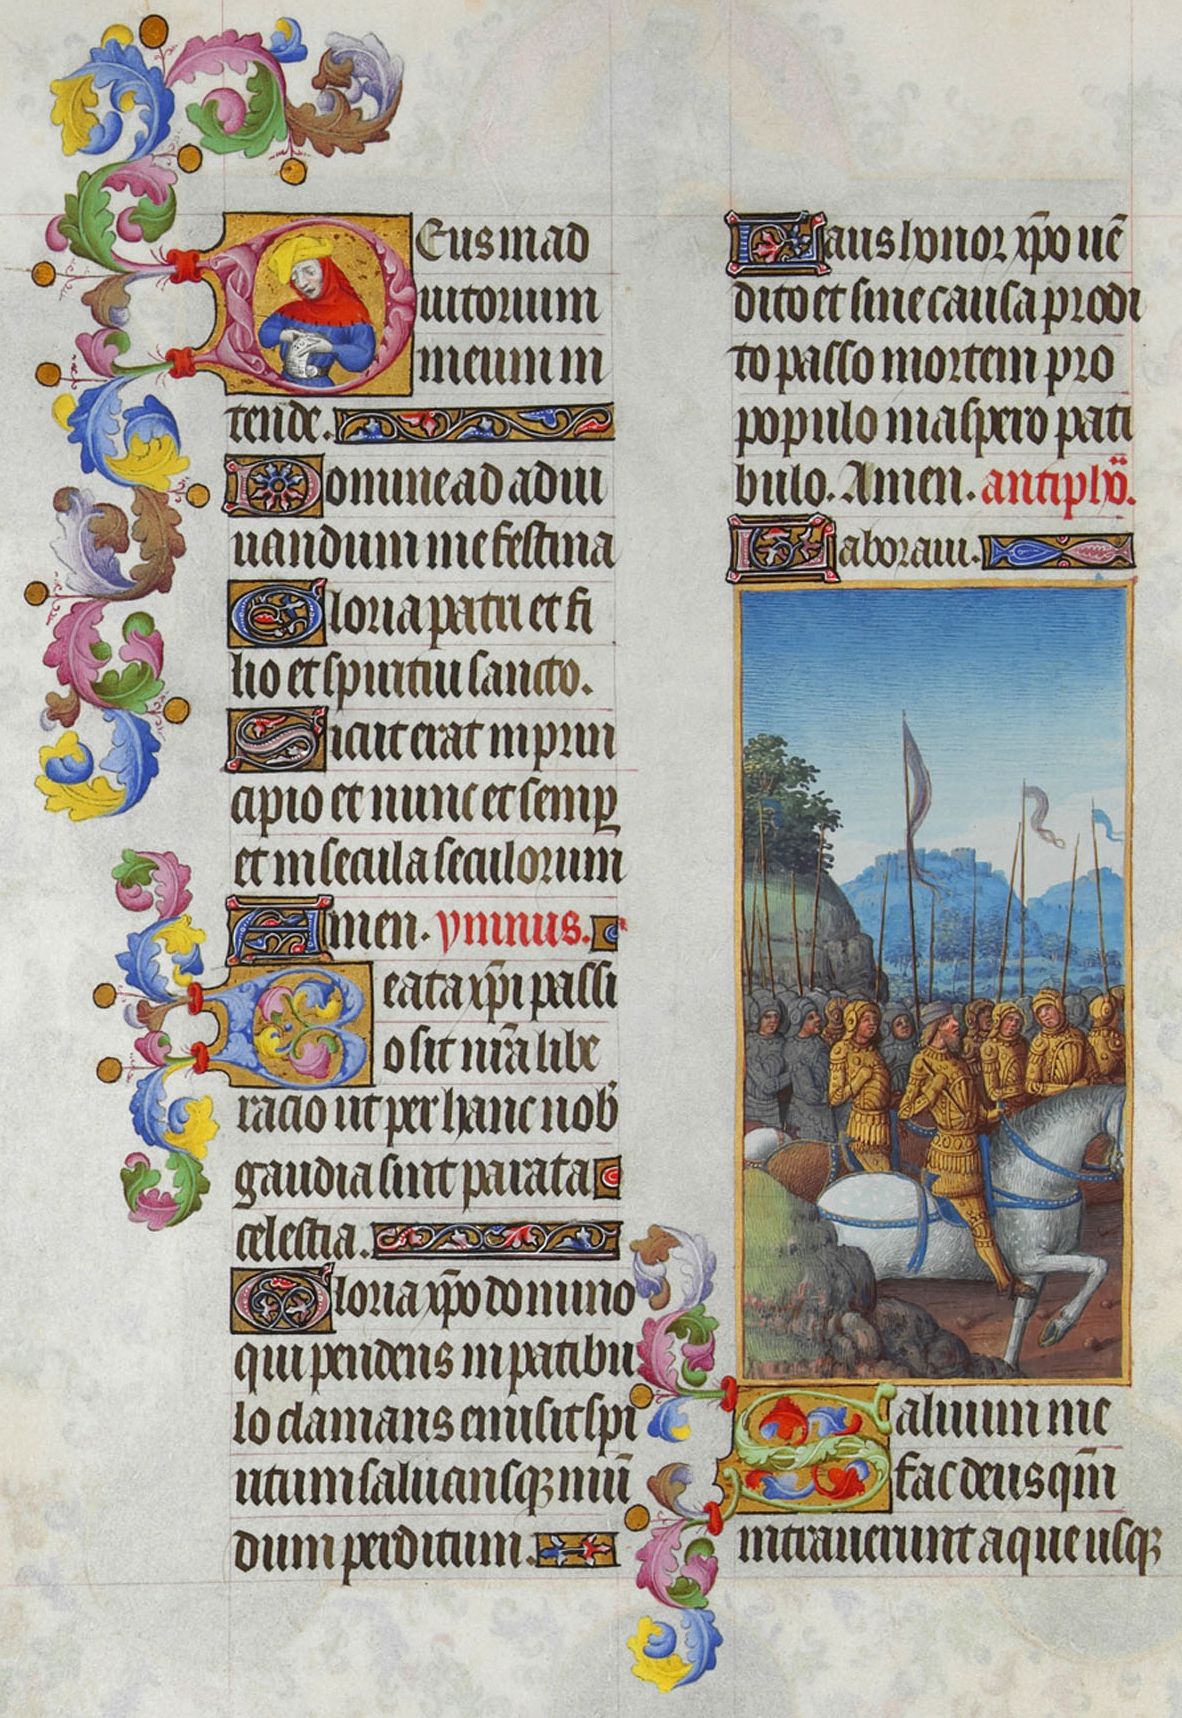 Deus in ad
iutorium
meum in
tende.
Domine ad adiu
uandum me festina
Gloria patri et fi
lio et spiritui sancto.
Sicut erat in prin
cipio et nunc et semp̲
et in secula seculorum
Amen. ymnus.
Beata xp̄i passi
o sit nr̄a libe
racio ut per hanc nob̾
gaudia sint parata
celestia.
Gloria xp̄o domino
qui pendens in patibu
lo clamans emisit spi
ritum saluansqꝫ mū
dum perditum.
Laus honor xp̄o uē
dito et sine causa prodi
to passo mortem pro
populo in aspero pati
bulo. Amen. antiph̄o.
Laboraui.
Saluum me
fac deus qm̄
intrauerunt aque usqꝫ